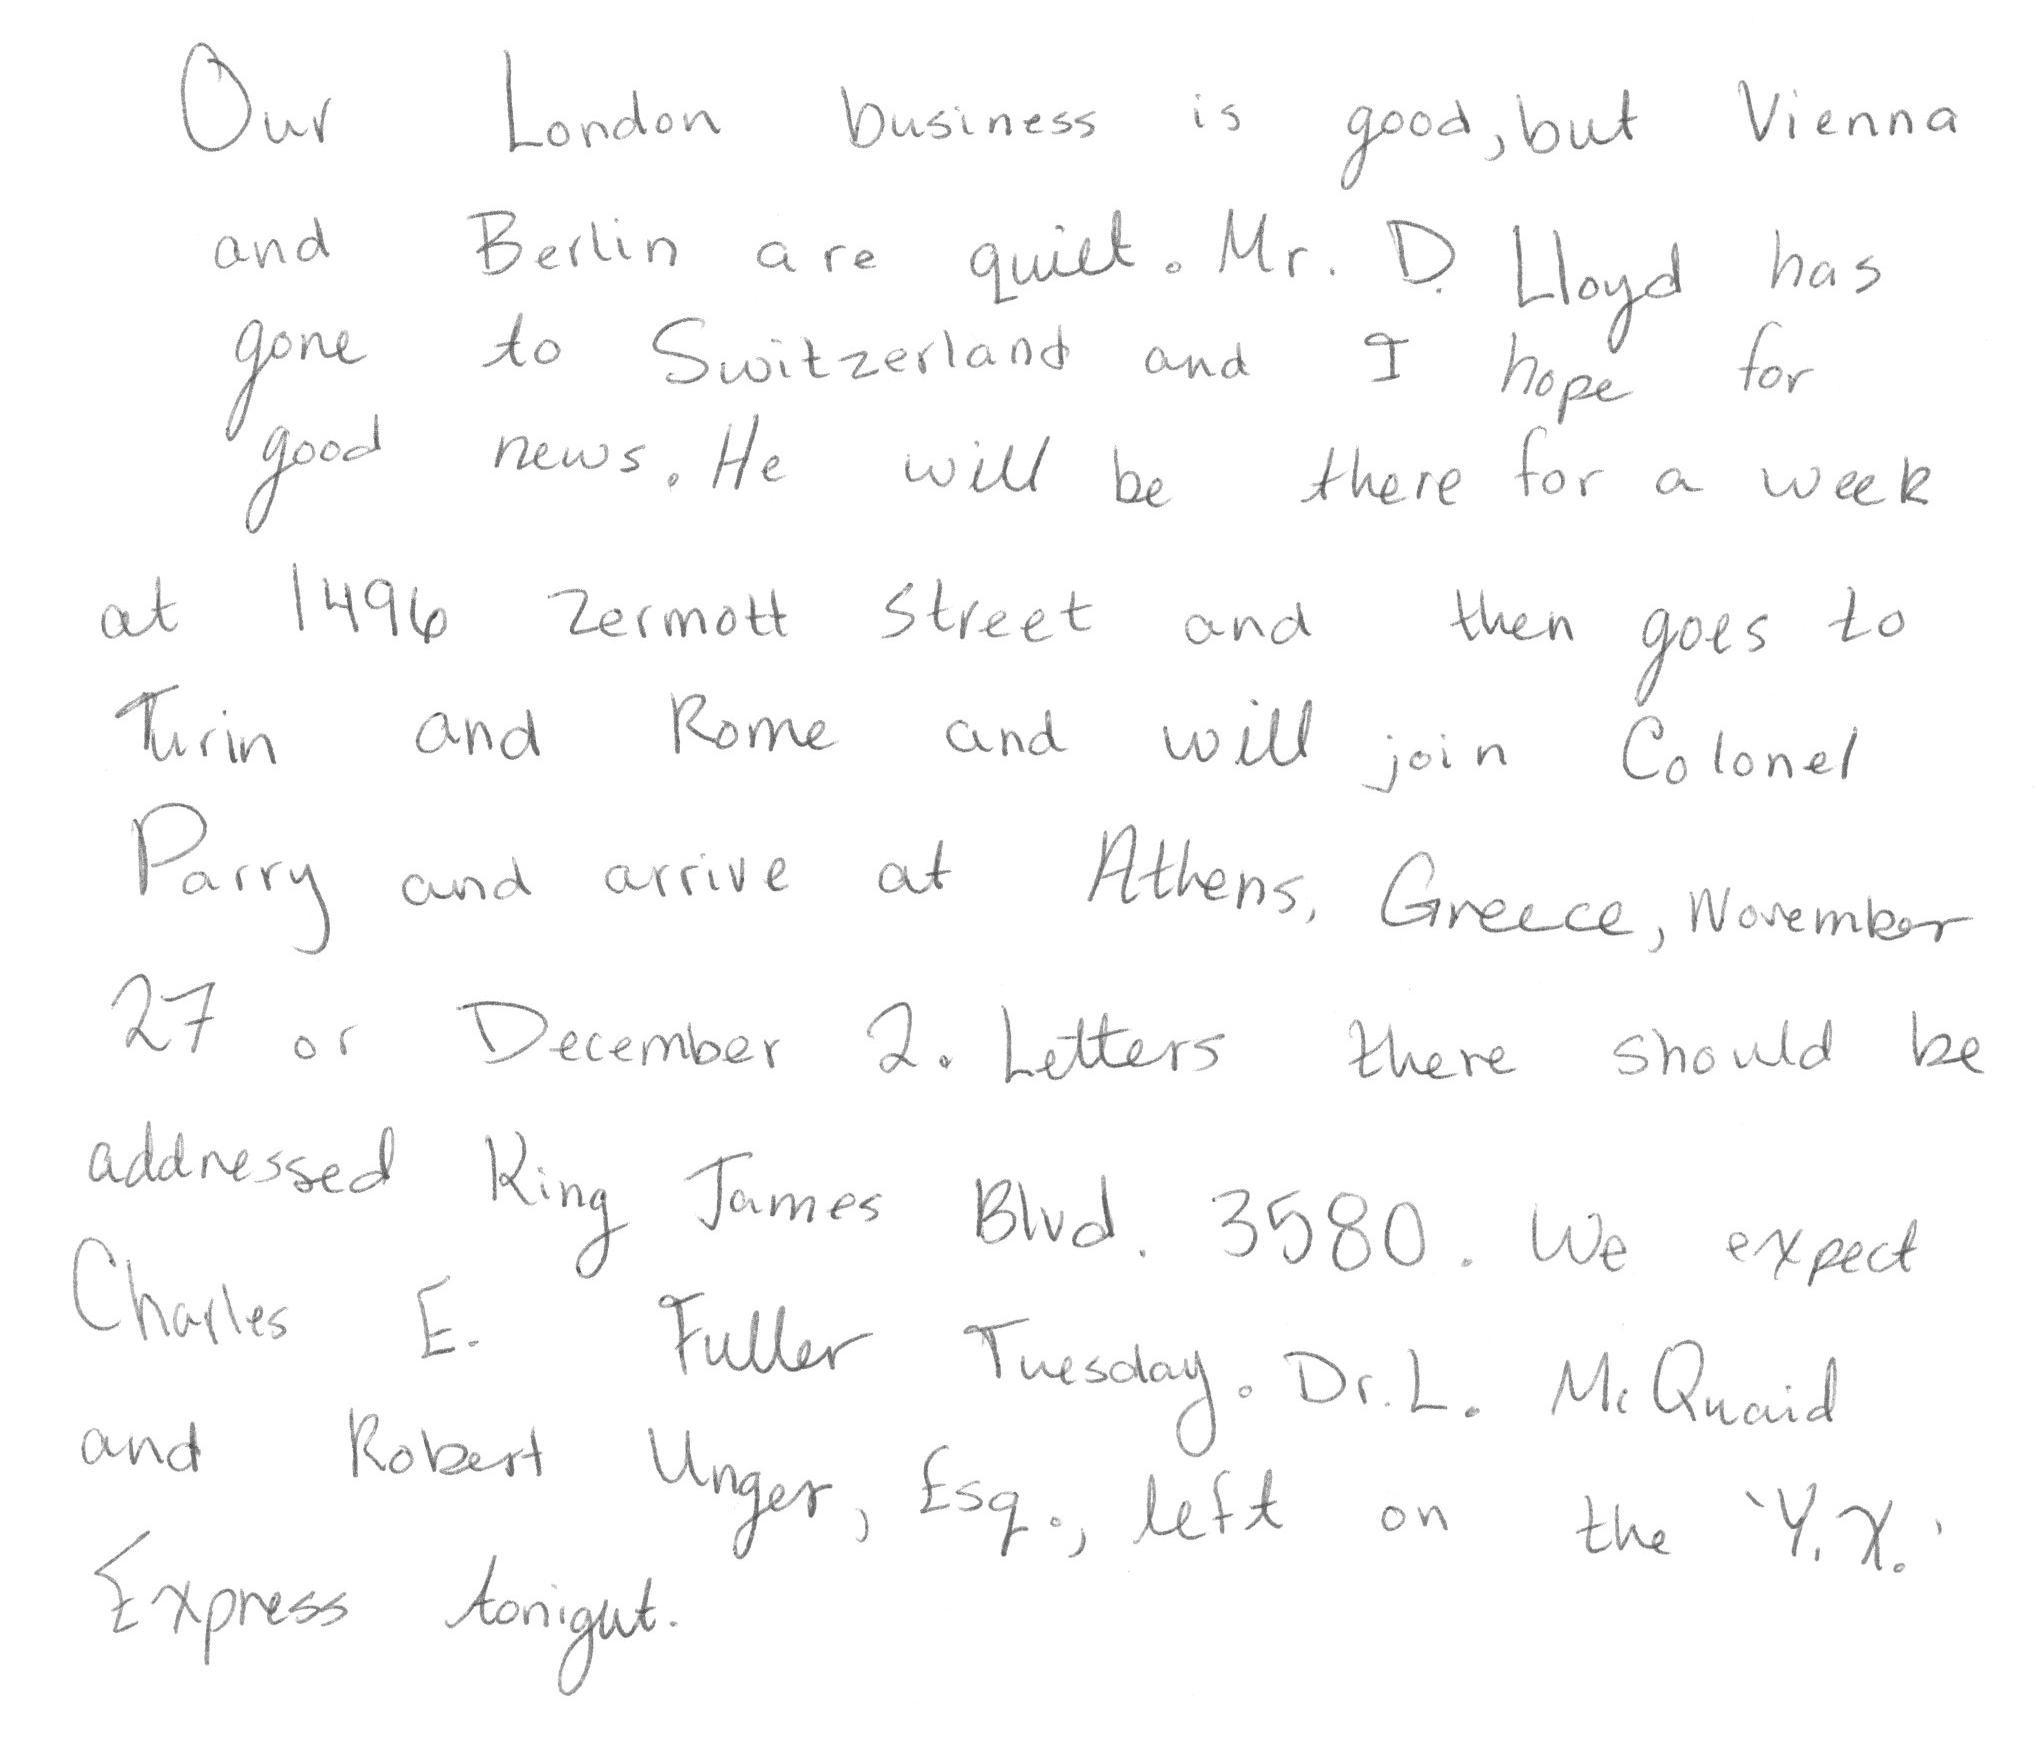 Our London business is good, but Vienna
and Berlin are quiet. Mr. D. Lloyd has
gone to Switzerland and I hope for
good news. He will be there for a week
at 1496 Zermott Street and then goes to
Turin and Rome and will join Colonel
Parry and arrive at Athens, Greece, November
27 or December 2. Letters there should be
addressed King James Blvd. 3580. We expect
Charles E. Fuller Tuesday. Dr. L. McQuaid
and Robert Unger, Esq., left on the 'Y.X.'
Express tonigut.